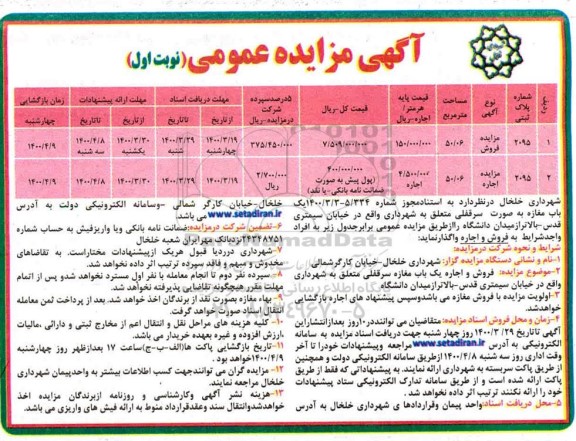 آگهی مزایده عمومی (نوبت اول)
ردیف
شماره پلاک ثبتی
نوع آگهی
مساحت مترمربع
قیمت پایه هرمتر/ اجاره-ریال
قیمت کل-ریال
۵درصدسپرده شرکت درمزایده-ریال
مهلت دریافت اسناد
مهلت ارائه پیشنهادات
زمان بازگشایی
ازتاریخ
تاتاریخ
ازتاریخ
تاتاریخ
چهارشنبه
۱
۲۰۹۵
مزایده فروش
۵۰/۰۶
۱۵۰/۰۰۰/۰۰۰
۷/۵۰۹/۰۰۰/۰۰۰
۳۷۵/۴۵۰/۰۰۰
۱۴۰۰/۳/۱۹ چهارشنبه
۱۴۰۰/۳/۲۹
۱۴۰۰/۳/۳۰ یکشنبه
۱۴۰۰/۴/۸ سه شنبه
۱۴۰۰/۴/۹
۲
۲۰۹۵
مزایده اجاره
۵۰/۰۶
۴/۵۰۰/۰۰۰ اجاره
۴۰۰/۰۰۰/۰۰۰ (پول پیش به صورت ضمانت نامه بانکی-یا نقد)
۲/۷۰۰/۰۰۰ ریال
۱۴۰۰/۳/۱۹
۱۴۰۰/۳/۲۹
۱۴۰۰/۳/۳۰
۱۴۰۰/۴/۸
۱۴۰۰/۴/۹
شهرداری خلخال درنظردارد به استنادمجوز شماره ۱۴۰۰/۳/۳-۵/۳۳۴یک
باب مغازه به صورت سرقفلی متعلق به شهرداری واقع در خیابان سیمتری
قدس-بالاترازمیدان دانشگاه راازطریق مزایده عمومی برابرجدول زیر به افراد
واجدشرایط به فروش و اجاره واگذارنماید:
شرایط و نحوه شرکت درمزایده:
۱-نام و نشانی دستگاه مزایده گزار: شهرداری خلخال-خیابان کارگرشمالی
۲-موضوع مزایده: فروش و اجاره یک باب مغازه سرقفلی متعلق به شهرداری
واقع در خیابان سیمتری قدس-بالاترازمیدان دانشگاه
۳-اولویت مزایده با فروش مغازه می باشدوسپس پیشنهاد های اجاره بازگشایی
خواهدشد.
۴-زمان و محل فروش اسناد مزایده: متقاضیان می توانند۱۰روز بعدازانتشاراین
آگهی تاتاریخ ۱۴۰۰/۳/۲۹ روز چهارشنبه جهت دریافت اسناد مزایده به سامانه
الکترونیکی به آدرس www.setadiran.ir مراجعه وپیشنهادات خودرا تا آخر
وقت اداری روز سه شنبه ۱۴۰۰/۴/۸ ازطریق سامانه الکترونیکی دولت و همچنین
از طریق پاکت سربسته به شهرداری ارائه نمایند. به پیشنهاداتی که فقط از طریق
پاکت ارائه شده است و از طریق سامانه تدارک الکترونیکی ستاد پیشنهادات
خود را ارائه نکنند ترتیب اثر داده نخواهد شد.
۵-محل دریافت اسناد: واحد پیمان وقراردادها ی شهرداری خلخال به آدرس
خلخال-خیابان کارگر شمالی -وسامانه الکترونیکی دولت به آدرس
www.setadiran.ir می باشد.
۶-تضمین شرکت درمزایده: ضمانت نامه بانکی ویا واریزفیش به حساب شماره
۲۴۲۴۸۷۵۱نزدبانک مهرایران شعبه خلخال
۷-شهرداری دررد یا قبول هریک ازپیشنهادات مختاراست. به تقاضاهای
مخدوش و مبهم و فاقد سپرده ترتیب اثر داده نخواهد شد.
۸-سپرده نفر دوم تا انجام معامله با نفر اول مسترد نخواهد شدو پس از اتمام
مهلت مقرر هیچگونه تقاضایی پذیرفته نخواهد شد.
۹-بهاء مغازه بصورت نقد از برندگان اخذ خواهد شد. بعد از پرداخت ثمن معامله
انتقال اسناد صورت خواهد گرفت.
۱۰-کلیه هزینه های مراحل نقل و انتقال اعم از مخارج ثبتی و دارائی ،مالیات
،ارزش افزوده و غیره بعهده خریدار می باشد.
۱۱-تاریخ بازگشایی پاکت ها(الف-ب-ج)ساعت ۱۷ بعدازظهر روز چهارشنبه
۱۴۰۰/۴/۹خواهد بود.
۱۲-مزایده گران می توانندجهت کسب اطلاعات بیشتر به واحدپیمان شهرداری
خلخال مراجعه نمایند.
۱۳-هزینه نشر آگهی وکارشناسی و روزنامه ازبرندگان مزایده اخذ
خواهدشدوانتقال سند وعقدقرارداد منوط به ارائه فیش های واریزی می باشد.